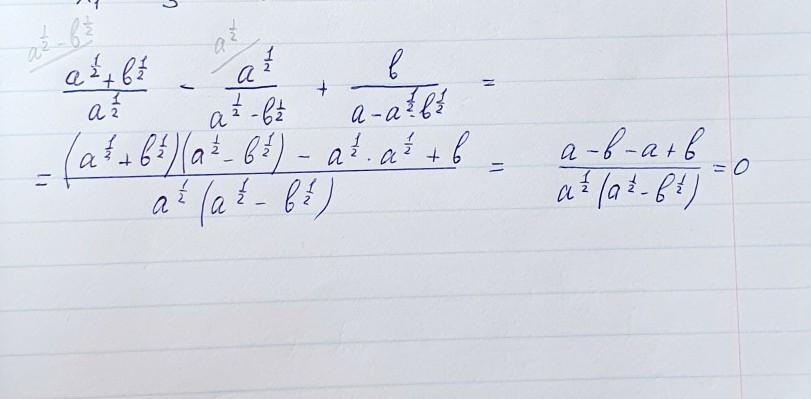 a^{1/2} - b^{1/2} a^{1/2}
\frac{a^{1/2} + b^{1/2}}{a^{1/2}} - \frac{a^{1/2}}{a^{1/2} - b^{1/2}} + \frac{b}{a - a^{1/2} \cdot b^{1/2}} =
= \frac{(a^{1/2} + b^{1/2})(a^{1/2} - b^{1/2}) - a^{1/2} \cdot a^{1/2} + b}{a^{1/2}(a^{1/2} - b^{1/2})} = \frac{a - b - a + b}{a^{1/2}(a^{1/2} - b^{1/2})} = 0